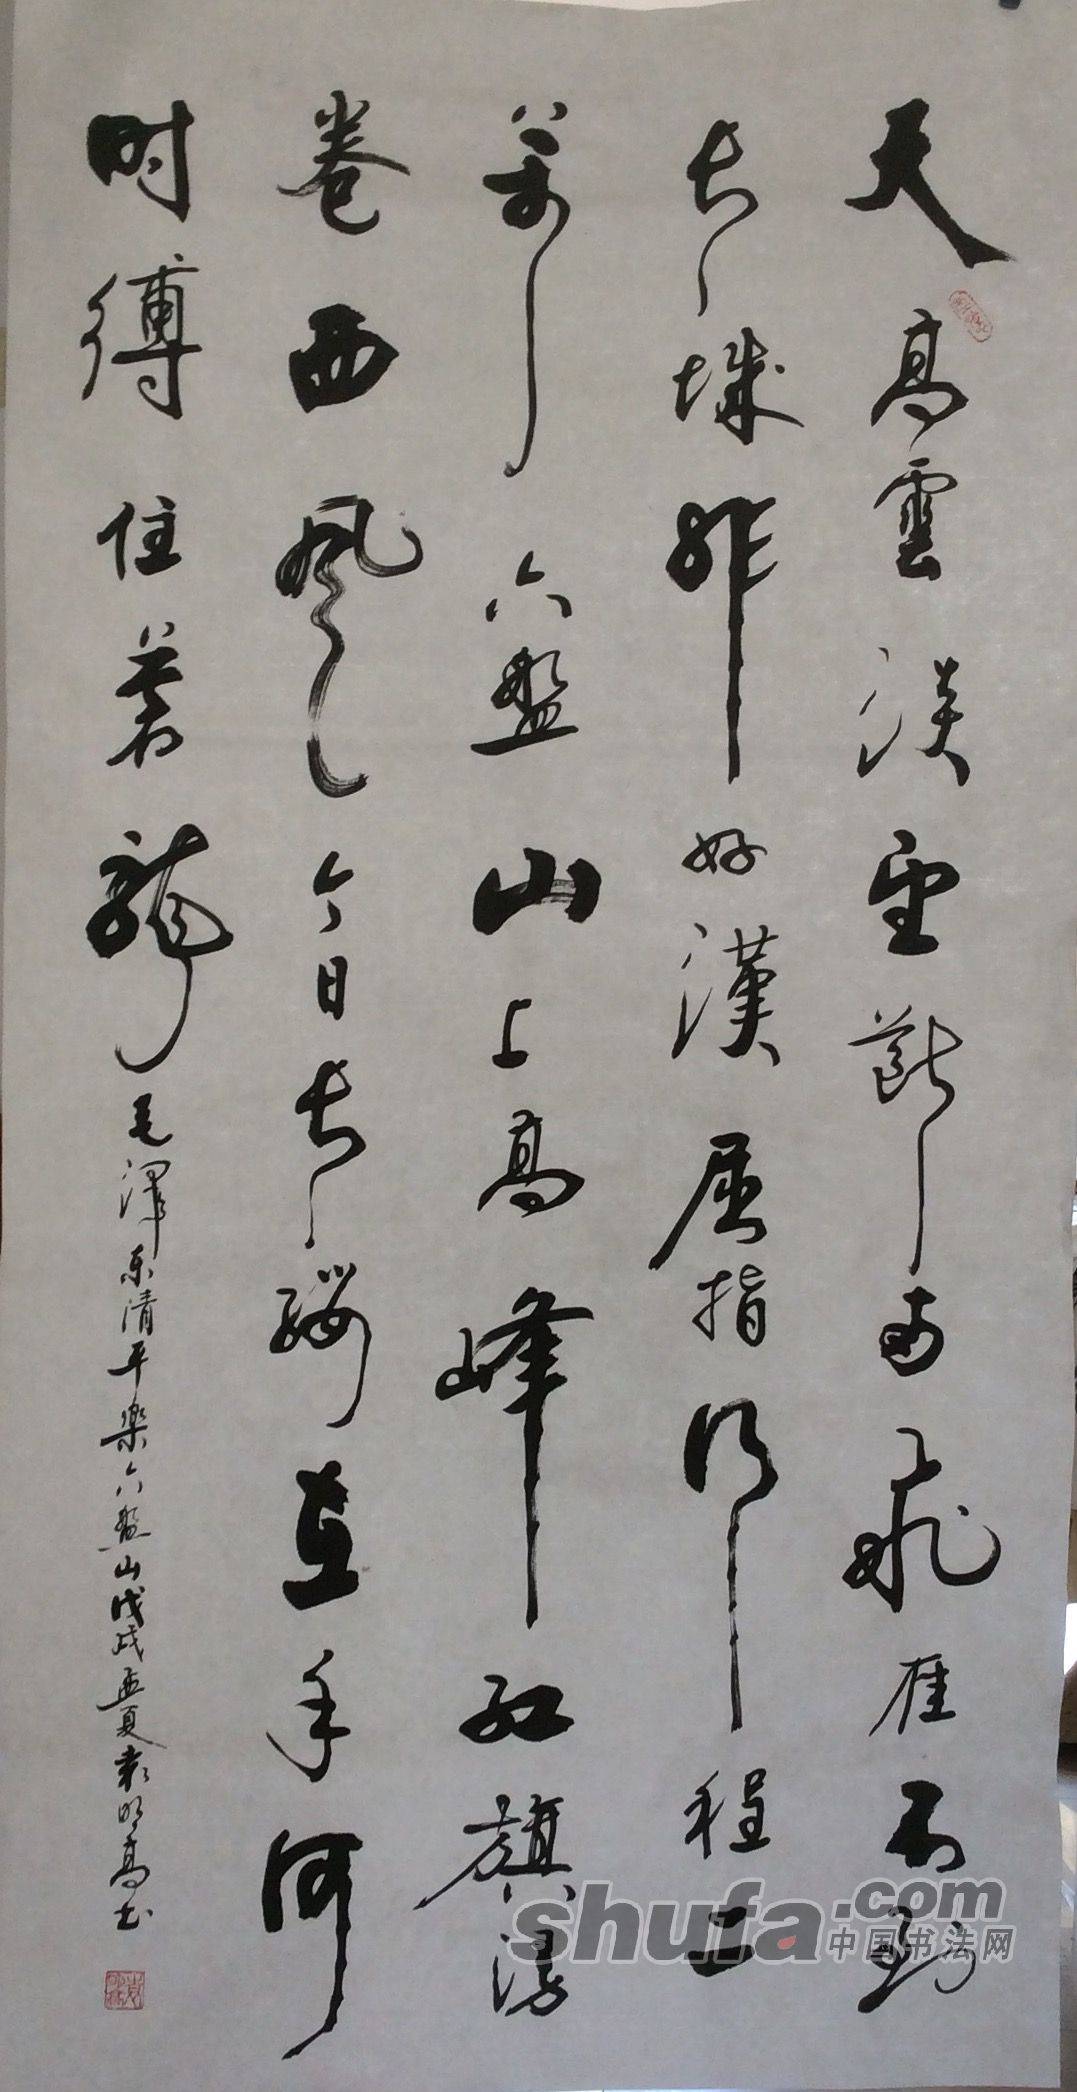 天高雲淡望斷南飛雁不到
長城非好漢屈指行程二
萬六盤山上高峰紅旗漫
卷西風今日長纓在手何
時縛住蒼龍
毛澤东清平樂六盤山戊戌孟夏袁明高书
shufa.com
中国书法网